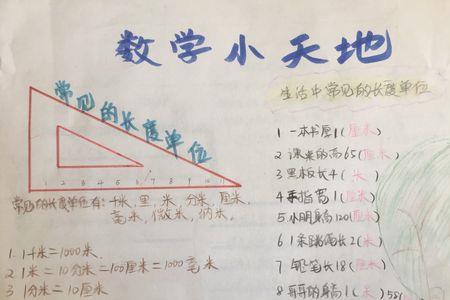 数学小天地
常见的长度单位
1 2 3 4 5 6 7 8 9 10 11
常见的长度单位有：千米，里，米，分米，厘米，
毫米，微米，纳米。
1. 1千米=1000米.
2 1米=10分米=100厘米=1000毫米
3 1分米=10厘米
生活中常见的长度单位
1 一本书厚1(厘米)
2 课桌的高65(厘米)
3 黑板长4(米)
4 手指宽1(厘米)
5 小明身高120(厘米)
6 1条跳绳长2(米)
7 铅笔长18(厘米)
8 哥哥的身高1(米)58(